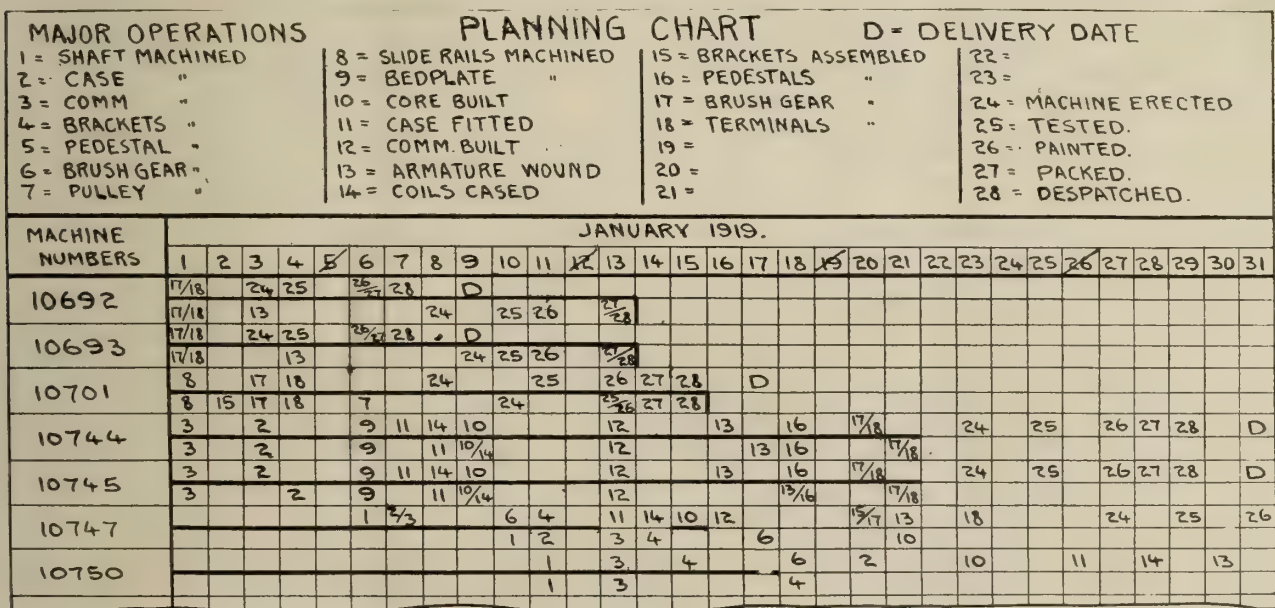 PLANNING CHART D = DELIVERY DATE
MAJOR OPERATIONS
1 = SHAFT MACHINED
2 = CASE "
3 = COMM "
4 = BRACKETS "
5 = PEDESTAL "
6 = BRUSH GEAR "
7 = PULLEY "
8 = SLIDE RAILS MACHINED
9 = BEDPLATE "
10 = CORE BUILT
11 = CASE FITTED
12 = COMM. BUILT
13 = ARMATURE WOUND
14 = COILS CASED
15 = BRACKETS ASSEMBLED
16 = PEDESTALS "
17 = BRUSH GEAR "
18 = TERMINALS "
19 =
20 =
21 =
22 =
23 =
24 = MACHINE ERECTED
25 = TESTED.
26 = PAINTED.
27 = PACKED.
28 = DESPATCHED.
MACHINE NUMBERS
JANUARY 1919.
1 2 3 4 5 6 7 8 9 10 11 12 13 14 15 16 17 18 19 20 21 22 23 24 25 26 27 28 29 30 31
10692
17/18 24 25 26/27 28 D
17/18 13 24 25 26 27/28
10693
17/18 24 25 26/27 28 . D
17/18 13 24 25 26 27/28
10701
8 17 18 24 25 26 27 28 D
8 15 17 18 7 24 25/26 27 28
10744
3 2 9 11 14 10 12 13 16 17/18 24 25 26 27 28 D
3 2 9 11 10/14 12 13 16 17/18
10745
3 2 9 11 14 10 12 13 16 17/18 24 25 26 27 28 D
3 2 9 11 10/14 12 13/16 17/18
10747
1 2/3 6 4 11 14 10 12 15/17 13 18 24 25 26
1 2 3 4 6 10
10750
1 3 4 6 2 10 11 14 13
1 3 4